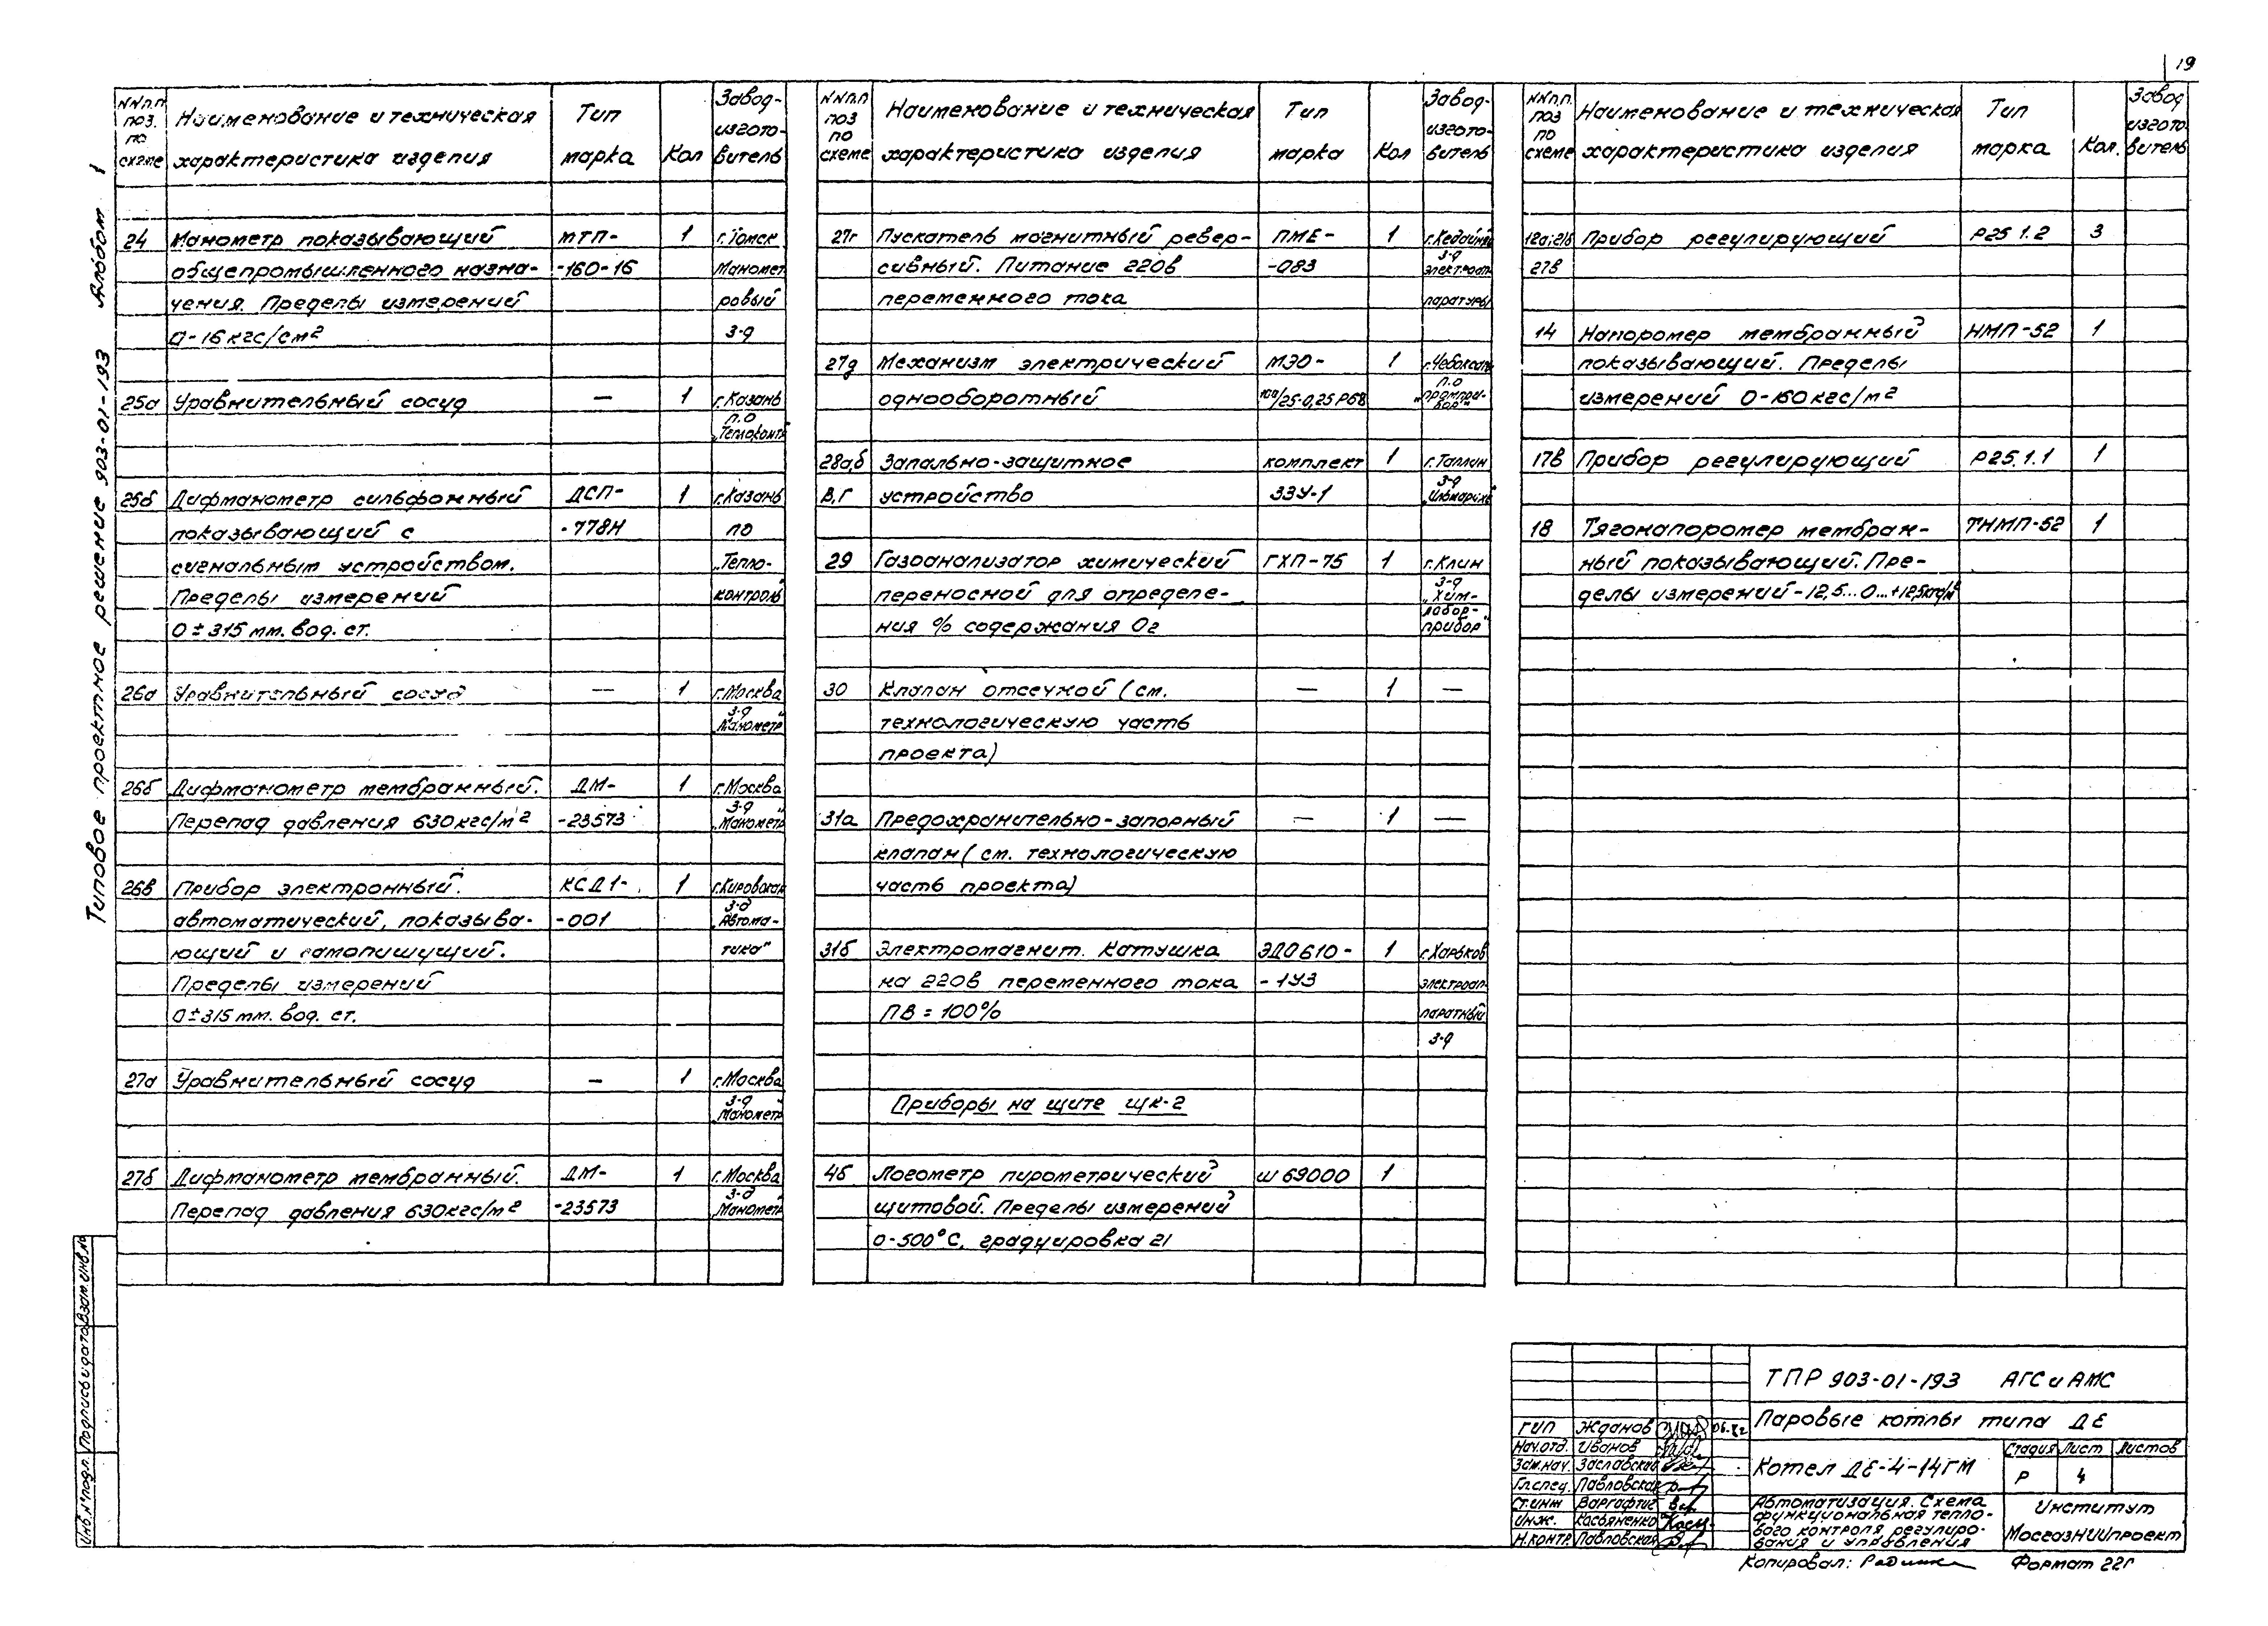 19
Типовое проектное решение 903-01-193 Альбом 1
NN п.п поз. по схеме | Наименование и техническая характеристика изделия | Тип марка | Кол | Завод-изготовитель
24 Манометр показывающий МТП- 1 г.Томск
общепромышленного назна- -160-16 Маномет
чения. Пределы измерений ровый
0-16 кгс/см² з-д
25а Уравнительный сосуд — 1 г.Казань
п.о
„Теплоконтр
25б Дифманометр сильфонный ДСП- 1 г.Казань
показывающий с -778Н ПО
сигнальным устройством. „Тепло-
Пределы измерений контроль"
0±315 мм. вод. ст.
26а Уравнительный сосуд — 1 г.Москва
з-д
„Манометр"
26б Дифманометр мембранный. ДМ- 1 г.Москва
з-д
Перепад давления 630 кгс/м² -23573 „Манометр"
26в Прибор электронный. КСД1- 1 г.Кировокан
з-д
автоматический, показыва- -001 „Автома-
ющий и самопишущий. тика"
Пределы измерений
0±315 мм. вод. ст.
27а Уравнительный сосуд — 1 г.Москва
з-д
„Манометр"
27б Дифманометр мембранный. ДМ- 1 г.Москва
з-д
Перепад давления 630 кгс/м² -23573 „Манометр"
NN п.п поз по схеме | Наименование и техническая характеристика изделия | Тип марка | Кол | Завод-изготовитель
27г Пускатель магнитный ревер- ПМЕ- 1 г.Кедайняй
з-д
сивный. Питание 220в -083 электроап-
переменного тока паратуры
27д Механизм электрический МЭО- 1 г.Чебоксары
п.о
однооборотный 100/25-0,25Р68 „Промпри-
бор"
28а,б Запально-защитное комплект 1 г.Таллин
з-д
в,г устройство ЗЗУ-1 „Ильмарине"
29 Газоанализатор химический ГХП-75 1 г.Клин
з-д
переносной для определе- „Хим-
лабор-
ния % содержания О2 прибор"
30 Клапан отсечной (см. — 1 —
технологическую часть
проекта)
31а Предохранительно-запорный — 1 —
клапан (см. технологическую
часть проекта)
31б Электромагнит. Катушка ЭД0610- 1 г.Харьков
на 220в переменного тока -1У3 электроап-
ПВ = 100% паратный
з-д
Приборы на щите ЩК-2
4б Логометр пирометрический Ш 69000 1
щитовой. Пределы измерений
0-500°С, градуировка 21
NN п.п. поз по схеме | Наименование и техническая характеристика изделия | Тип марка | Кол. | Завод изготовитель
12а;21б Прибор регулирующий Р25 1.2 3
27в
14 Напоромер мембранный НМП-52 1
показывающий. Пределы
измерений 0-160 кгс/м²
17в Прибор регулирующий Р25.1.1 1
18 Тягонапоромер мембран- ТНМП-52 1
ный показывающий. Пре-
делы измерений -12,5...0...+12,5кгс/м²
ТПР 903-01-193 АГС и АМС
Паровые котлы типа ДЕ
Котел ДЕ-4-14ГМ
Стадия Лист Листов
Р 4
Автоматизация. Схема
функциональная тепло-
вого контроля регулиро-
вания и управления
Институт
Мосгазниипроект
ГИП Жданов
Нач.отд. Иванов
Зам.нач. Заславская
Гл.спец. Павловская
Ст.инж Варгафтиг
Инж. Касьяненко
Н.контр. Павловская
Копировал: Формат 22г
Инв.№подл. Подпись и дата Взам.инв.№